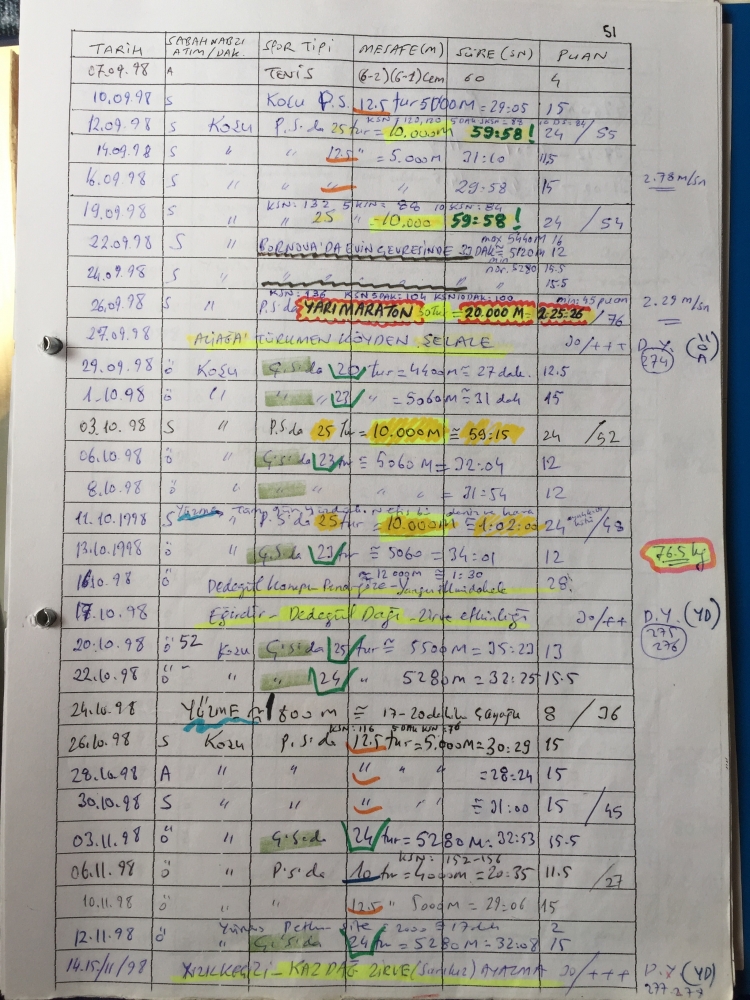 51
TARİH SABAH NABZI ATIM/DAK. SPOR TİPİ MESAFE(M) SÜRE(SN) PUAN
07.09.98 A TENİS (6-2)(6-1) Cem 60 4
10.09.98 S KOŞU P.S. 12.5 tur 5000M = 29:05 15
12.09.98 S KOŞU P.S.da 25 tur = 10.000M 59:58! 24 / 55
14.09.98 S " " 12.5 " = 5.000M 31:10 11.5
16.09.98 S " " " 29:58 15 2.78 m/sn
KSN: 132, 5 KSN= 88 10 KSN: 84
19.09.98 S " " 25 10.000 59:58! 24 / 54
22.09.98 S " BORNOVA'DA EVİN ÇEVRESİNDE 30 DAK ≅ 5120M 12
max 5440M 16
min
24.09.98 S " nor. 5280 15.5
15.5
KSN: 136 KSN5DAK: 104 KSN10DAK: 100 min: 45 puan
26.09.98 S " P.S'da YARIMARATON = 20.000M = 2:25:26 / 76 2.29 m/sn
27.09.98 ALİAĞA TÜRKMEN KÖYDEN ŞELALE 30/+++ D.Y. (ÖA) 274
29.09.98 Ö Koşu Ç.S'da 20 tur = 4400M ≅ 27 dak. 12.5
1.10.98 Ö " " 23 " = 5060M ≅ 31 dak 15
03.10.98 S " P.S.da 25 tur = 10.000M ≅ 59:15 24 / 52
06.10.98 Ö " Ç.S'da 23 tur ≅ 5060M = 32:04 12
8.10.98 Ö " " " = 31:54 12
Yüzme
11.10.1998 S " P.S'da 25 tur = 10.000M ≅ 1:02:00 24 / 48
13.10.1998 Ö Ç.S.da 23 tur ≅ 5060 = 34:01 12 76.5 kg
≅ 12000M ≅ 1:30
16.10.98 Ö Dedegöl Kampı 28
17.10.98 Eğirdir - Dedegöl Dağı - Zirve etkinliği 30/++ D.Y. (YD) 275 276
20.10.98 Ö 52 Koşu Ç.S'da 25 tur ≅ 5500M = 35:23 13
22.10.98 Ö " " 24 " 5280M = 32:25 15.5
24.10.98 YÜZME ≅ 1800m ≅ 17-20 8 / 36
KSN: 116
26.10.98 S Koşu P.S.da 12.5 tur = 5.000M = 30:29 15
28.10.98 A " " " " " = 28:24 15
30.10.98 S " " " " " ≅ 31:00 15 / 45
03.11.98 Ö " Ç.S.da 24 tur = 5280M = 32:53 15.5
KSN: 152-156
06.11.98 Ö " P.S'da 10 tur = 4000M = 20:35 11.5 / 27
10.11.98 Ö " 12.5 " 5000M = 29:06 15
Yüzme 2000 ≅ 17 dak 2
12.11.98 Ö " Ç.S'da 24 tur = 5280M = 32:08 15
14.15/11/98 KIZILKEÇİLİ - KAZDAĞ ZİRVE (Sarıkız) AYAZMA 30/+++ D.Y (YD) 277-278